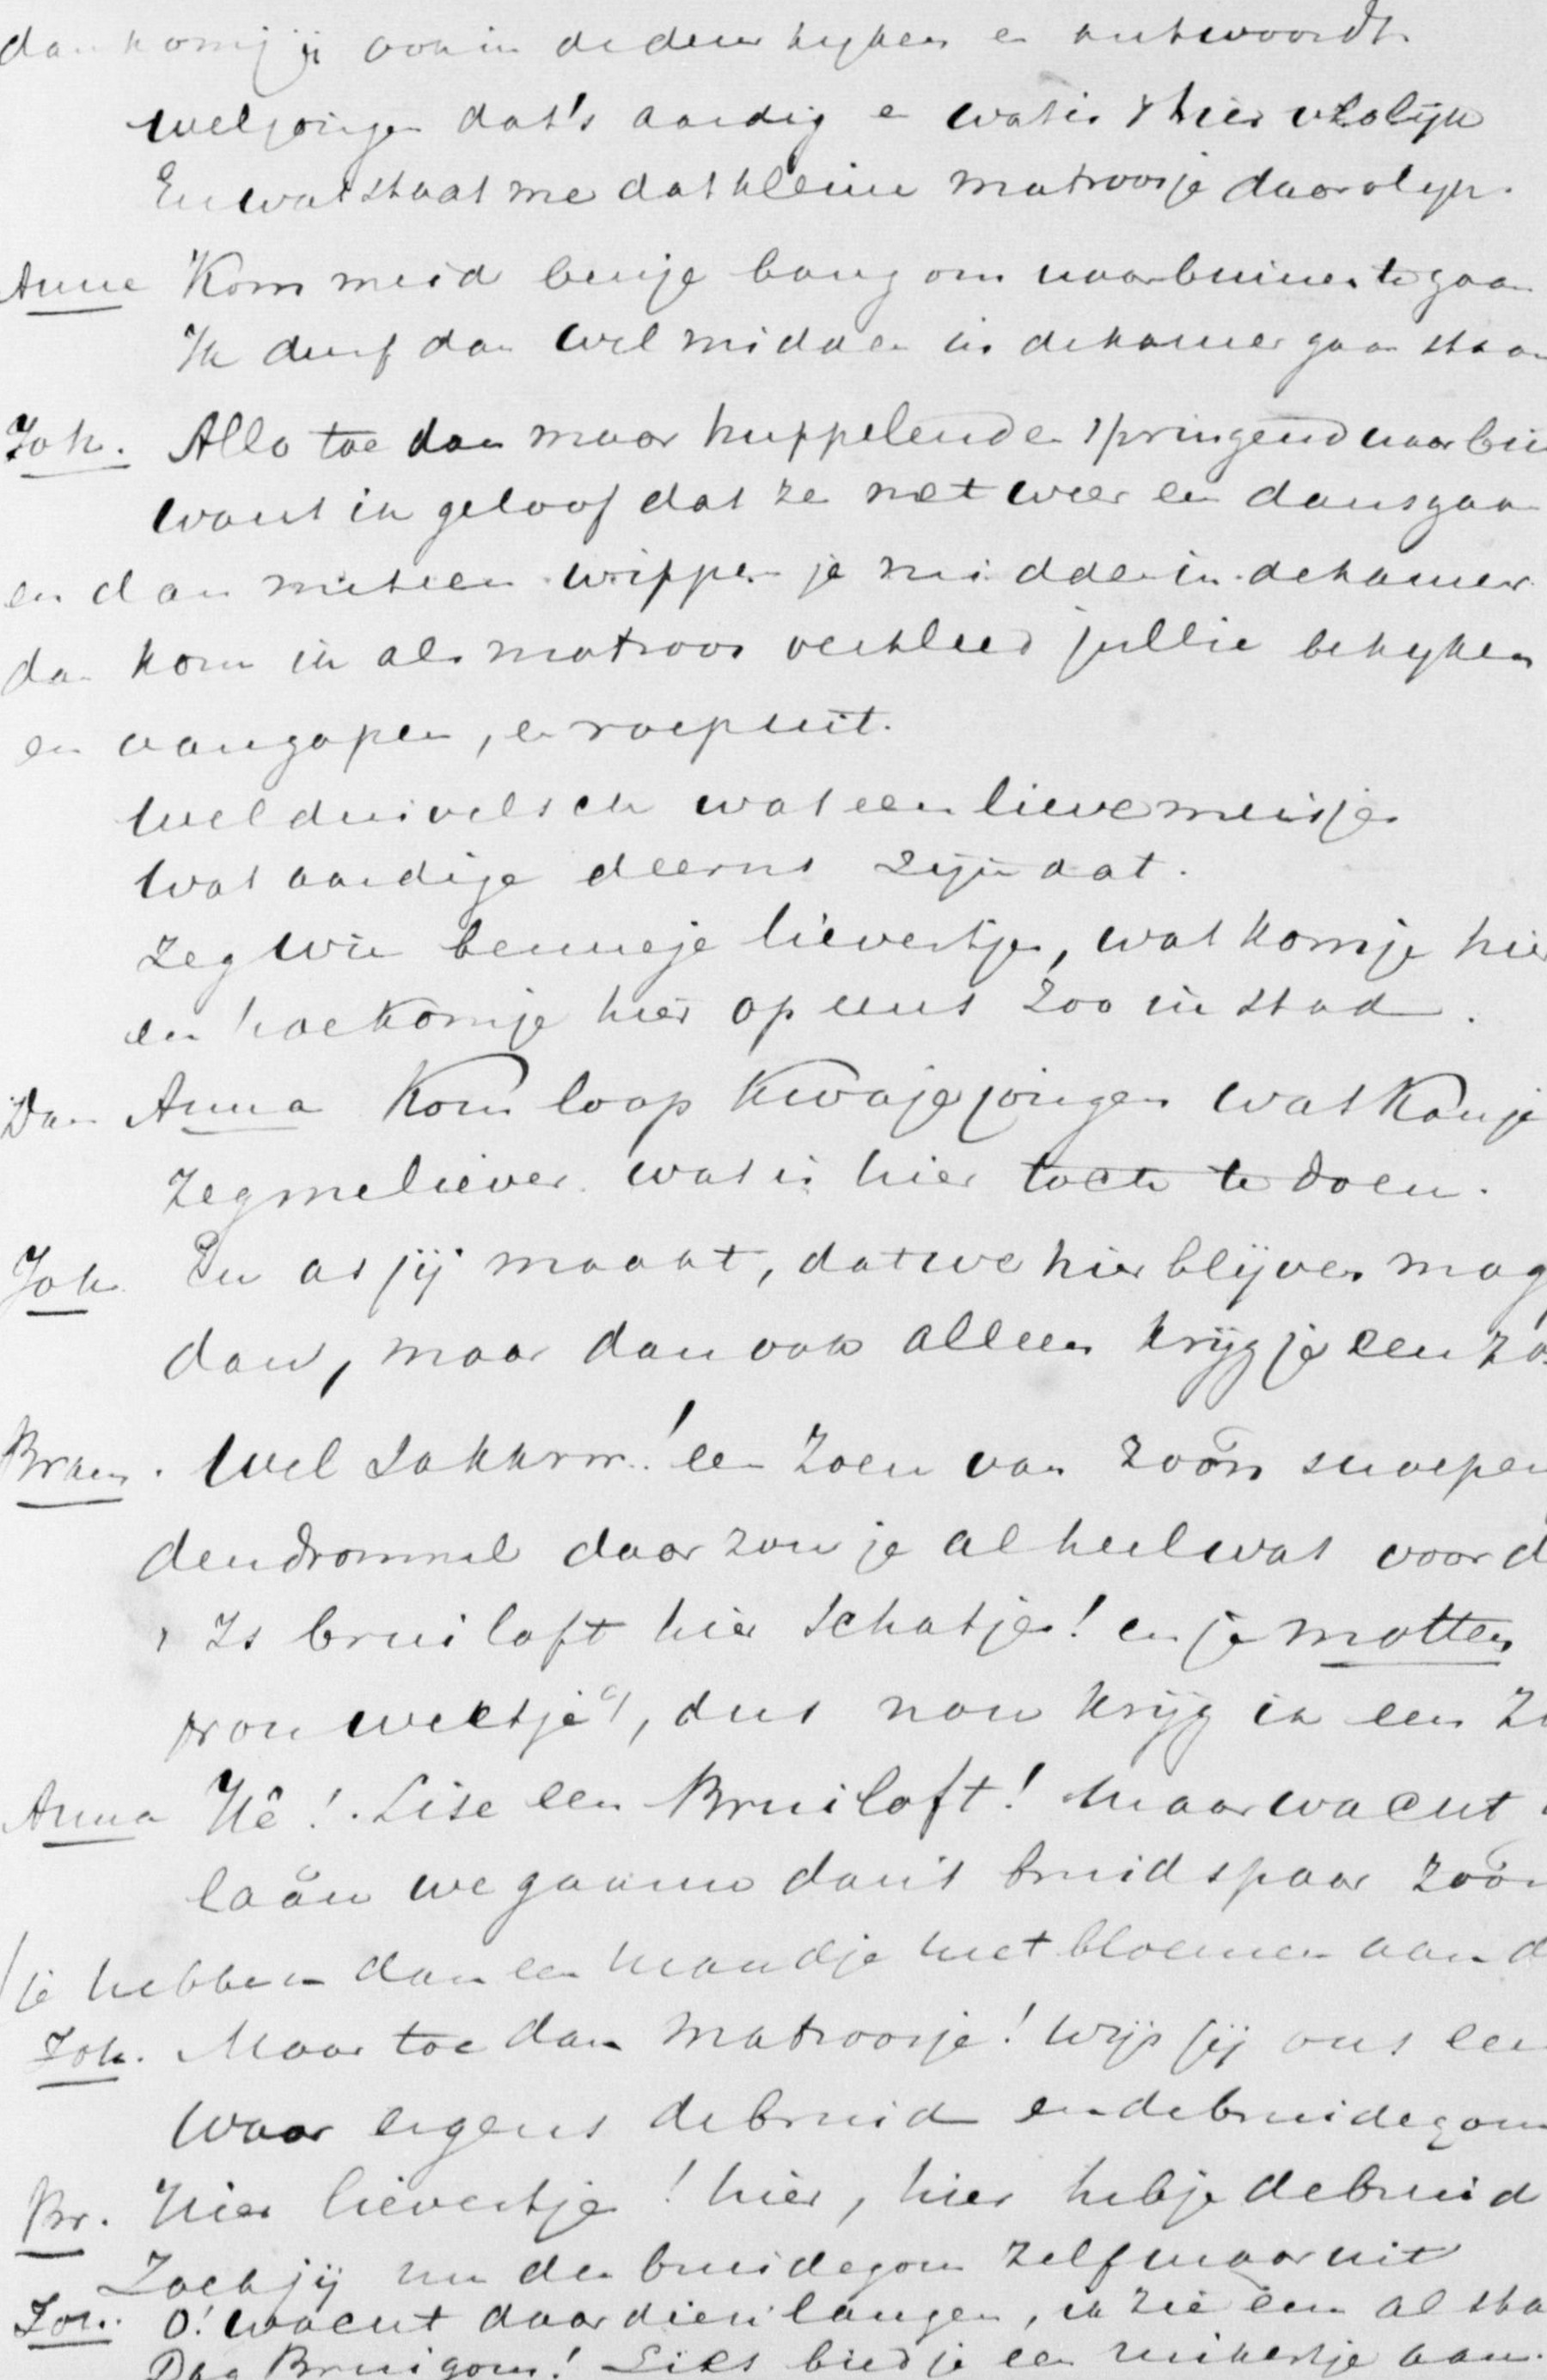 dan kom jij ook in de deur kyken en antwoordt.
wel jongen dat's aardig en wat is 't hier vrolijk
En wat staat me dat kleine matroosje daar olyk.
Anna Kom meid ben je bang om naar binnen te gaan
Ik durf dan wel midden in de kamer gaan staan
Joh. Allo toe dan maar huppelend en springend naar bin
want ik geloof dat ze net weer en dans gaan
en dan meteen wippen je midden in de kamer.
dan kom ik als matroos verkleed jullie bekyken
en aangapen, en roep uit.
Wel duivelsch wat een lieve meisjes
Wat aardige deerns zijn dat.
Zeg wie benne je lievertjes, wat kom je hier
en hoe kom je hier op eens zoo in stad.
Dan Anna Kom loop kwaje jongen wat kan je
Zeg me liever wat is hier toch te doen.
Joh En as jij maakt, dat we hier blijven mag
dan, maar dan ook alleen krijg je een zo
Bram. Wel sakkrrr! een zoen van zoo'n snoepen
den drommel daar zou je al heel wat voor d
't Is bruiloft hier schatjes! en je motten
nou weetje't, dus nou krijg ik een zo
Anna Hê! Lise een Bruiloft! Maar wacht
laan we gaauw dan 't bruidspaar zoo
je hebben dan een mandje met bloemen aan d
Joh. Maar toe dan matroosje! wijs jij ons een
Waar ergens de bruid en de bruidegom
Br. Hier lievertje! hier, hier heb je de bruid
Zoek jij nu den bruidegom zelf maar uit
Joh. O! wacht daar dien langen, ik zie em al sta
Dag Bruigom! Lies bied je een ruikertje aan.